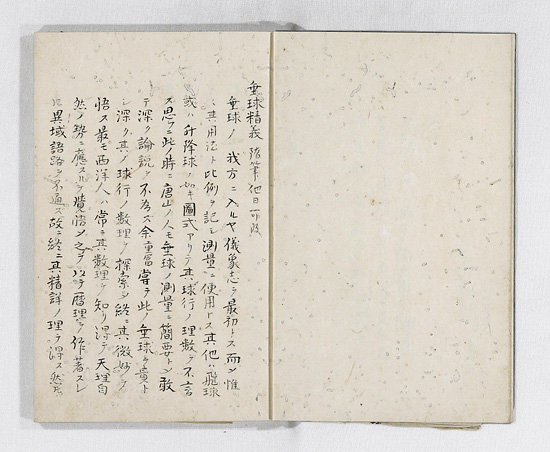 垂球精義 随筆他日可改
垂球ノ我方ニ入ルヤ儀象志ヲ最初トス而シ惟
其用法ト比例ヲ記シ測量ニ使用トス其他ハ飛球
或ハ升降球ノ如キ圖式アリテ其球行ノ理數ヲ不言
ス思フニ此ノ時ニ唐山ノ人モ垂球ノ測量ニ簡要トシ敢
テ深ク論說ヲ不為ズ余重富嘗テ此ノ垂球ヲ貴ト
シ深ク其ノ球行ノ数理ヲ探索シ終ニ其微妙ヲ
悟ス最モ西洋人ハ常ニ其数理ヲ知リ得テ天理自
然ノ勢ニ應スルヲ賛悟シ之ヲ以テ暦理ヲ作著スレ
異域語路ヲ不通ズ故ニ終ニ其精詳ノ理ヲ得ス然